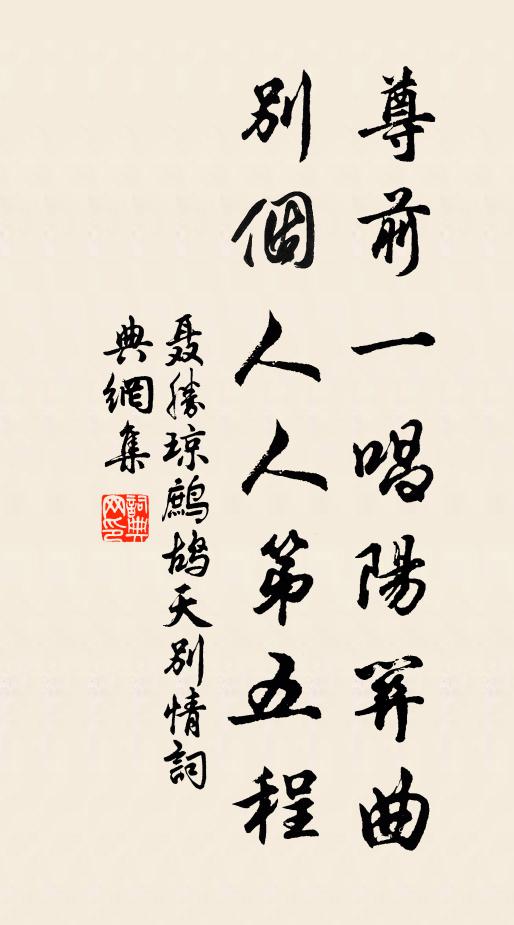 尊前一唱陽關曲
別個人人第五程
聂勝琼鷓鴣天別情詞
典網集
詞典网印